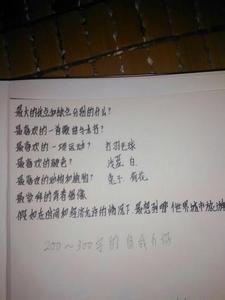 最大的优点和缺点分别是什么?
最喜欢的一首歌曲与书?
最喜欢的一项运动? 打羽毛球
最喜欢的颜色? 浅蓝 白
最喜欢的动物和植物? 兔子 荷花
最崇拜的青春偶像
假如在时间和经济允许的情况下最想到哪个世界城市旅游
200~300字的自我介绍